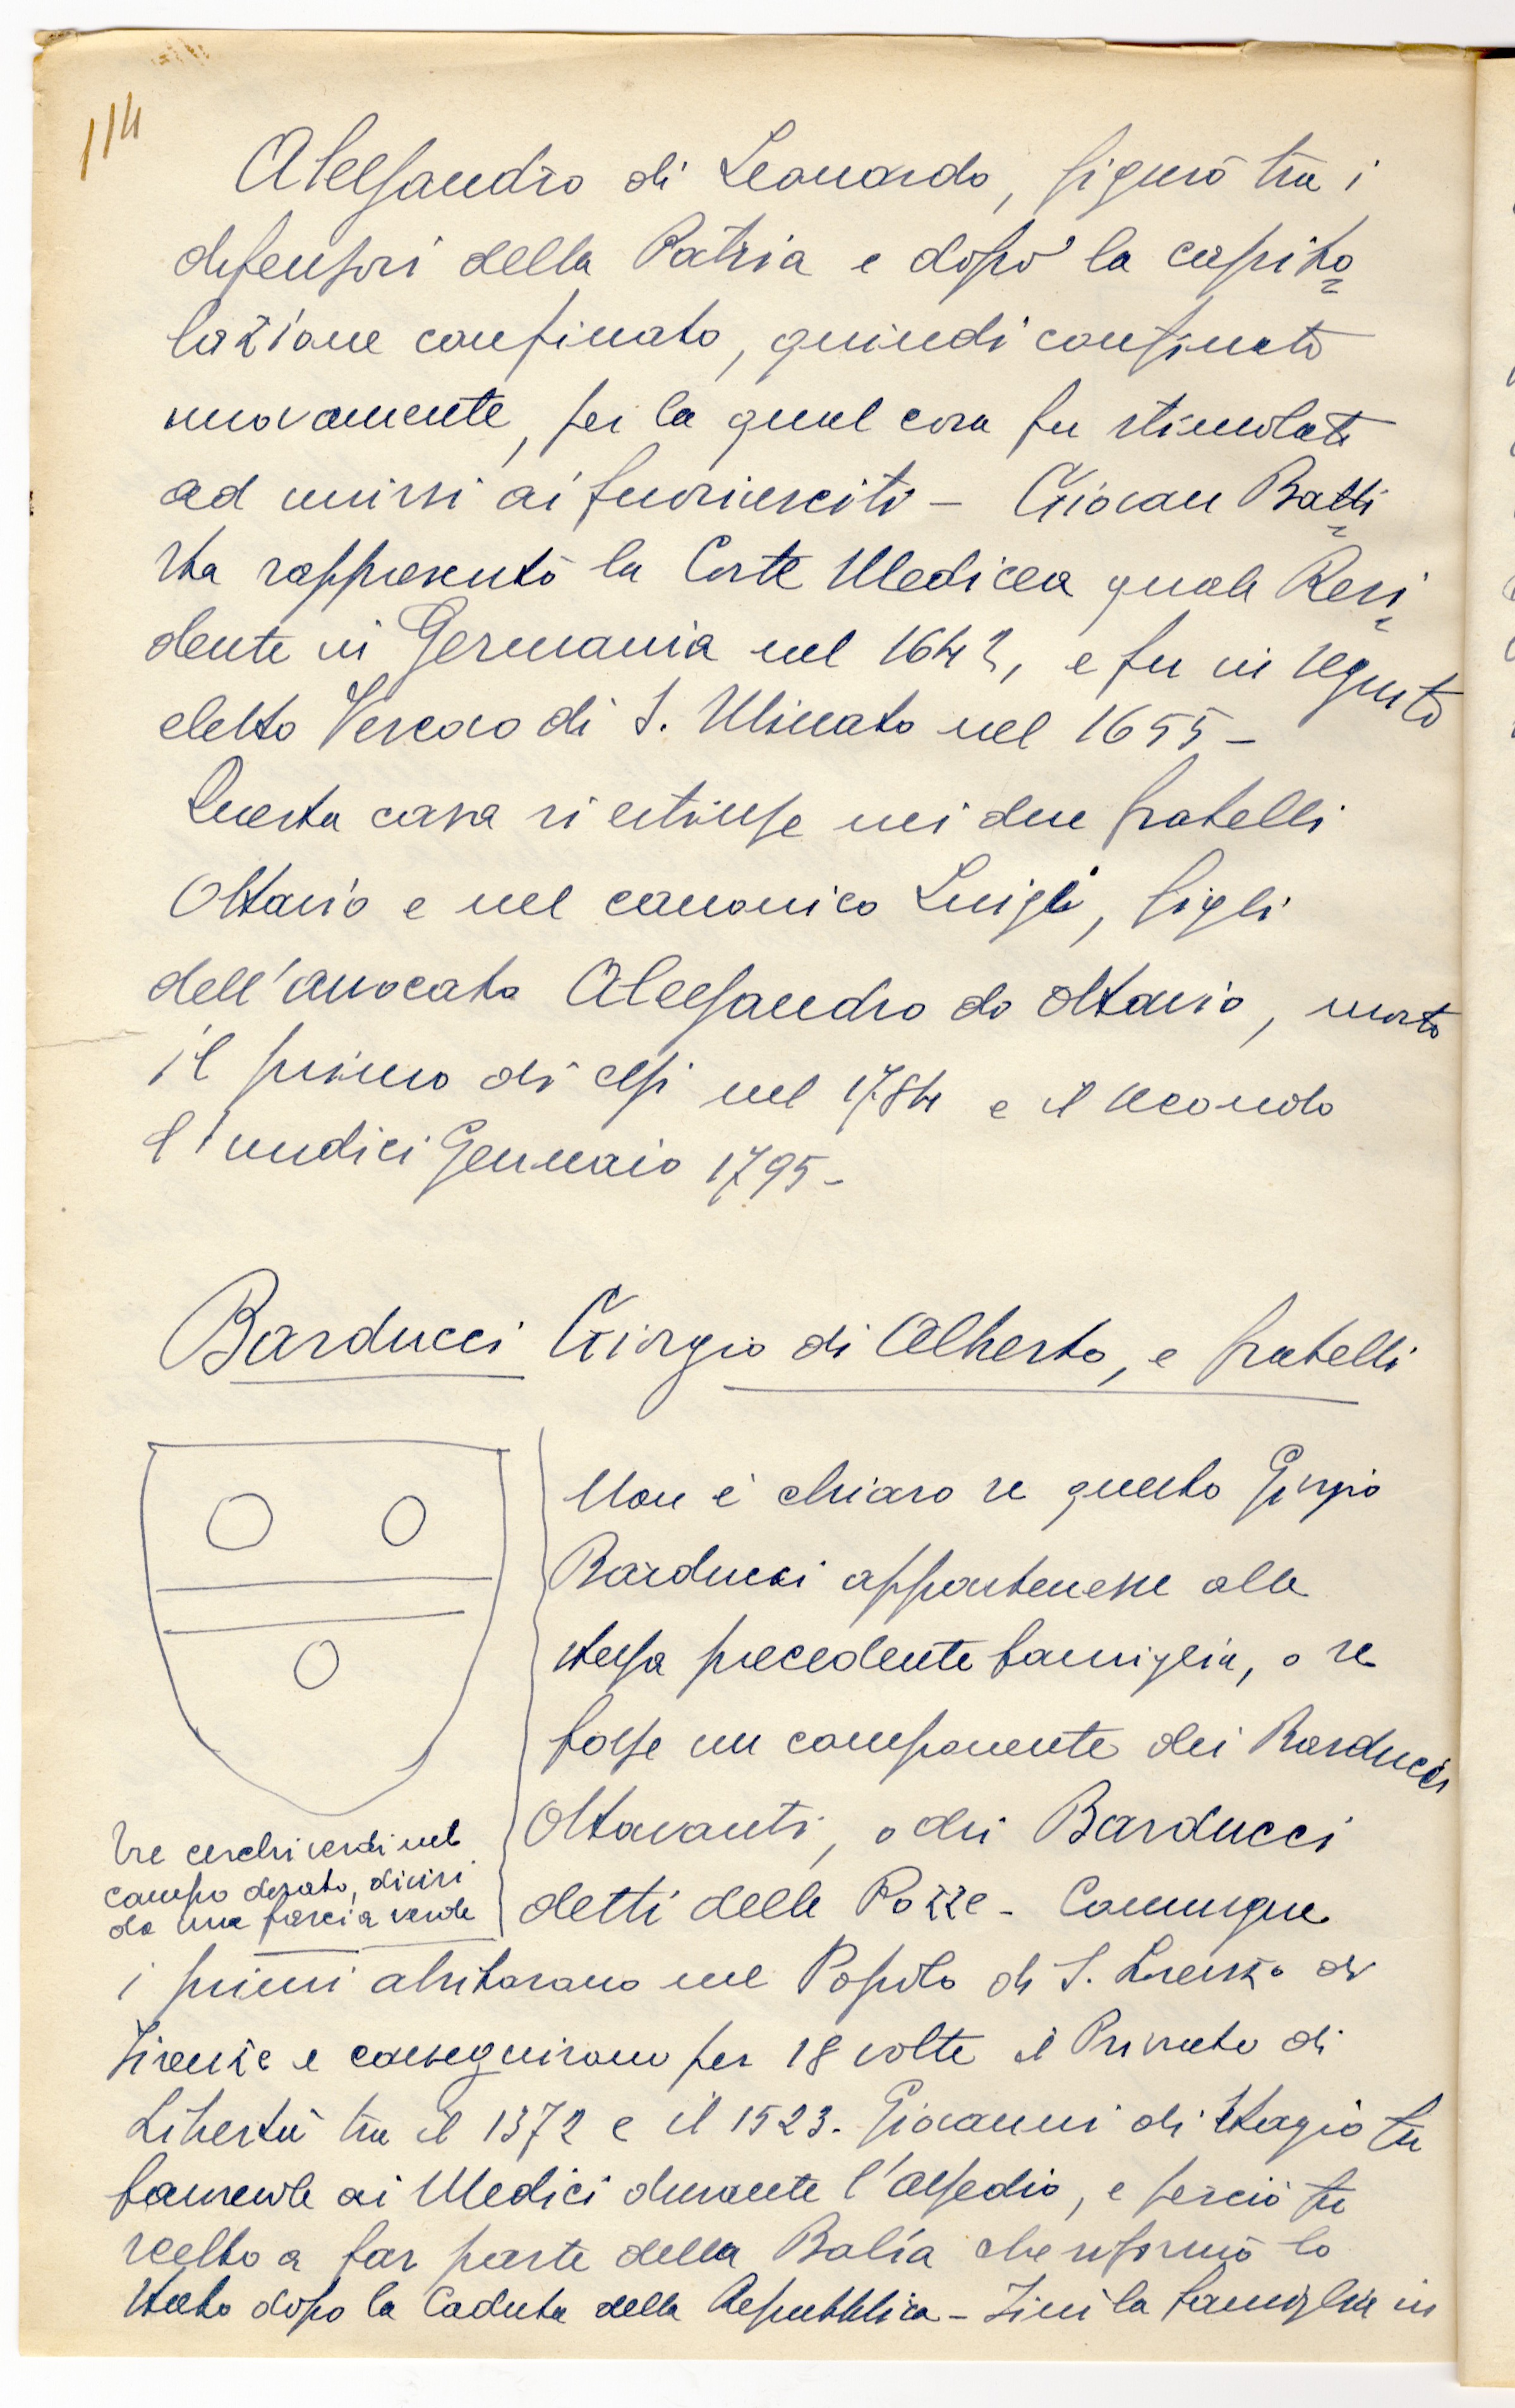 114
Alessandro di Leonardo, figurò tra i
difensori della Patria e dopo la capito
lazione confinato, quindi confinato
nuovamente, per la qual cosa fu stimolato
ad unirsi ai fuoriusciti - Giovan Batti
sta rappresentò la Corte Medicea quale Resi
dente in Germania nel 1642, e fu in seguito
eletto Vescovo di S. Miniato nel 1655 -
Questa casa si estinse nei due fratelli
Ottavio e nel canonico Luigi, figli
dell'avvocato Alessandro do Ottavio, morto
il primo di essi nel 1784 e il secondo
l'undici Gennaio 1795 -
Barducci Giorgio di Alberto, e fratelli
Non è chiaro se questo Giorgio
Barducci appartenesse alla
stessa precedente famiglia, o se
fosse un componente dei Barducci
Ottavanti, o dei Barducci
detti delle Pozze - Comunque
Tre cerchi verdi nel
campo dorato, divisi
da una fascia verde
i primi abitarono nel Popolo di S. Lorenzo di
Firenze e conseguirono per 18 volte il Priorato di
Libertà tra il 1372 e il 1523. Giovanni di Stagio fu
favorevole ai Medici durante l'assedio, e perciò fu
scelto a far parte della Balía che riformò lo
Stato dopo la Caduta della Repubblica - Finì la famiglia in